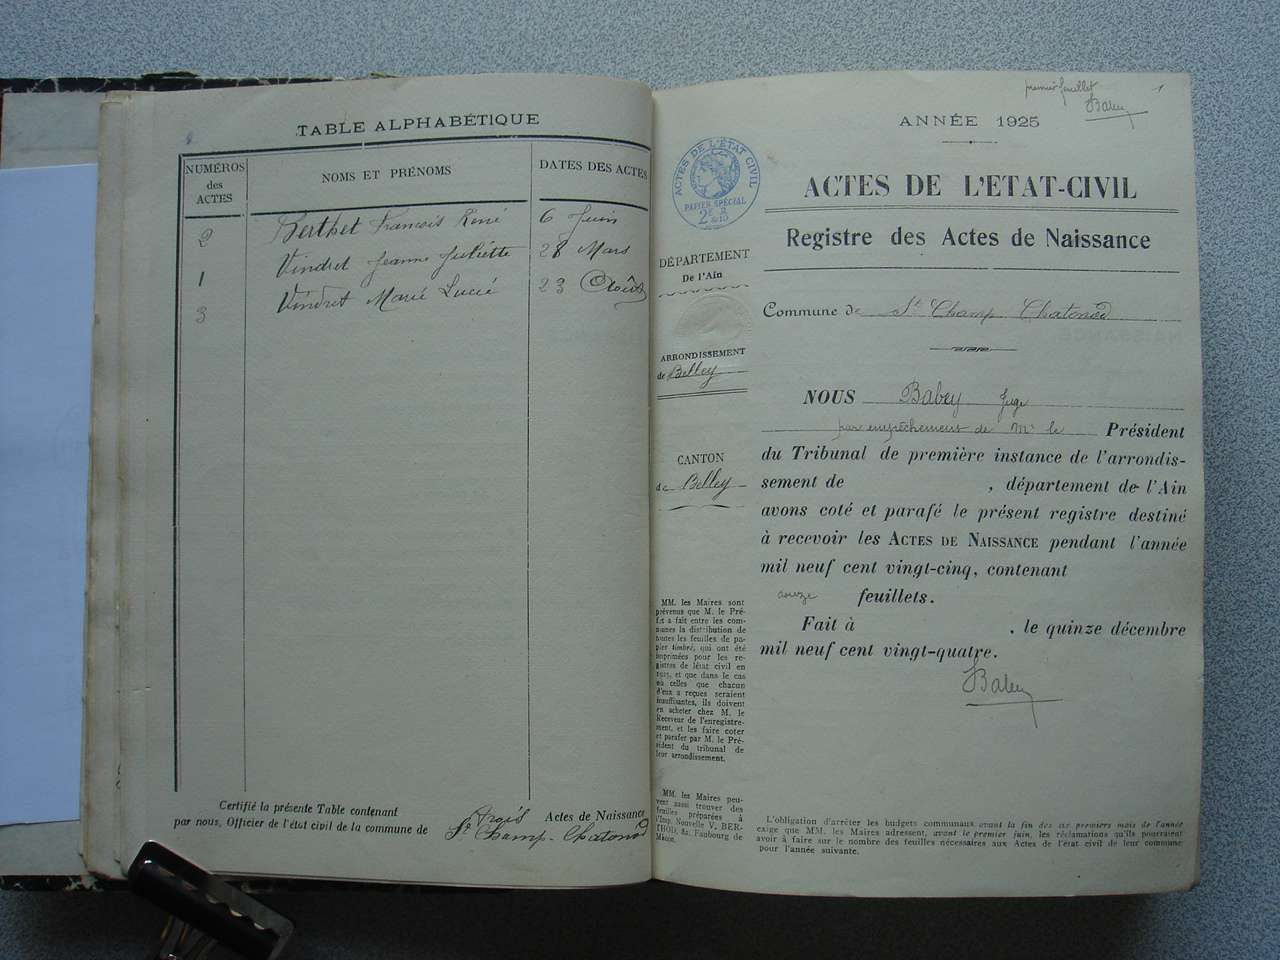 TABLE ALPHABÉTIQUE
NUMÉROS des ACTES
NOMS ET PRÉNOMS
DATES DES ACTES
2 Berthet Francois René 6 Juin
1 Vindret Jeanne Juliette 28 Mars
3 Vindret Marie Lucie 23 Août
Certifié la présente Table contenant trois Actes de Naissance
par nous, Officier de l'état civil de la commune de St Champ-Chatonod
premier feuillet
Babey
1
ANNÉE 1925
ACTES DE L'ÉTAT CIVIL
PAPIER SPÉCIAL
ACTES DE L'ETAT-CIVIL
Registre des Actes de Naissance
DÉPARTEMENT
De l'Ain
Commune de St Champ Chatonod
ARRONDISSEMENT
de Belley
CANTON
de Belley
NOUS Babey Juge
par empêchement de Mr le Président
du Tribunal de première instance de l'arrondis-
sement de , département de l'Ain
avons coté et parafé le présent registre destiné
à recevoir les ACTES DE NAISSANCE pendant l'année
mil neuf cent vingt-cinq, contenant
feuillets.
Fait à , le quinze décembre
mil neuf cent vingt-quatre.
Babey
MM. les Maires sont
prévenus que M. le Pré-
fet a fait entre les com-
munes la distribution de
toutes les feuilles de pa-
pier timbré, qui ont été
imprimées pour les re-
gistres de létat civil en
1925, et que dans le cas
où celles que chacun
d'eux a reçues seraient
insuffisantes, ils doivent
en acheter chez M. le
Receveur de l'enregistre-
ment, et les faire coter
et parafer par M. le Pré-
sident du tribunal de
leur arrondissement.
MM. les Maires peu-
vent aussi trouver des
feuilles préparées à
l'Imp. Nouvelle V. BER-
THOD, 8a, Faubourg de
Mâcon.
L'obligation d'arrêter les budgets communaux avant la fin des six premiers mois de l'année
exige que MM. les Maires adressent, avant le premier juin, les réclamations qu'ils pourraient
avoir à faire sur le nombre des feuilles nécessaires aux Actes de l'état civil de leur commune
pour l'année suivante.